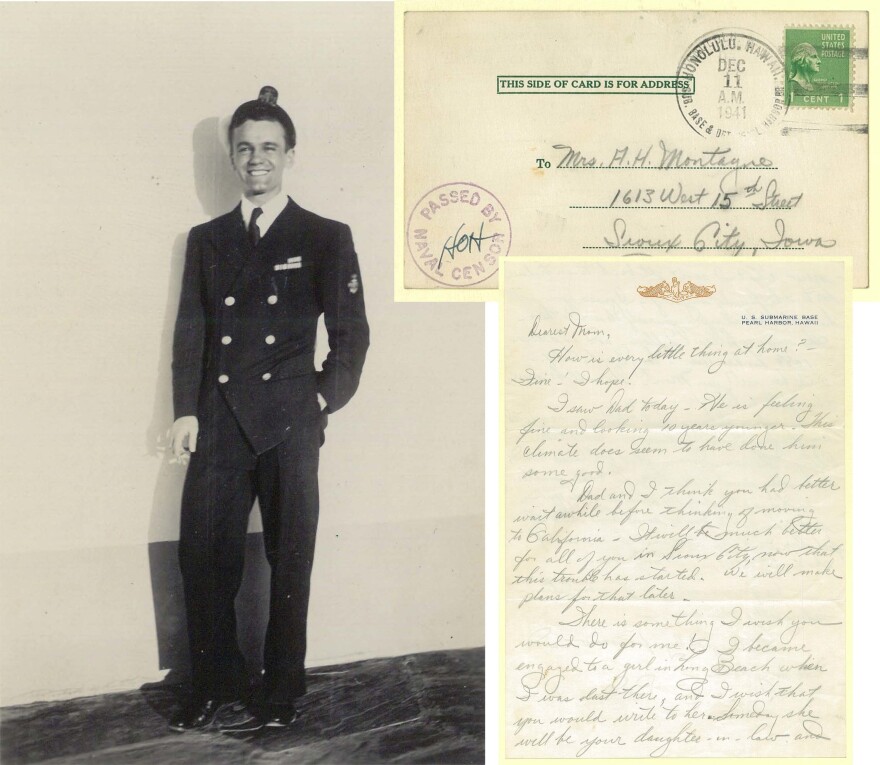 THIS SIDE OF CARD IS FOR ADDRESS
HONOLULU, HAWAII.
DEC
11
A.M.
1941
BASE &
UNITED
STATES
POSTAGE
1 CENT 1
To Mrs. A. H. Montagne
1613 West 15th Street
Sioux City, Iowa
PASSED BY
NAVAL CENSOR
U. S. SUBMARINE BASE
PEARL HARBOR, HAWAII
Dearest Mom,
How is every little thing at home? -
Fine! I hope.
I saw Dad today - He is feeling
fine and looking 10 years younger - This
climate does seem to have done him
some good.
Dad and I think you had better
wait awhile before thinking of moving
to California - It will be much better
for all of you in Sioux City, now that
this trouble has started. We will make
plans for that later -
There is something I wish you
would do for me! I became
engaged to a girl in Long Beach when
I was last there, and I wish that
you would write to her. Someday she
will be your daughter-in-law and